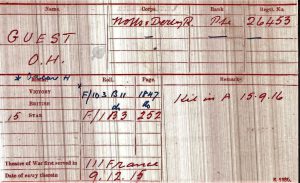 Name. Corps. Rank. Regtl. No.
GUEST Notts & Derby R. Pte 26453
O.H.
* H
Roll. Page. Remarks.
VICTORY * F/103 B11 1847
BRITISH do do K in A 15-9-16
15 STAR F/1 B3 252
Theatre of War first served in (1) France
Date of entry therein 9.12.15
K 1380.